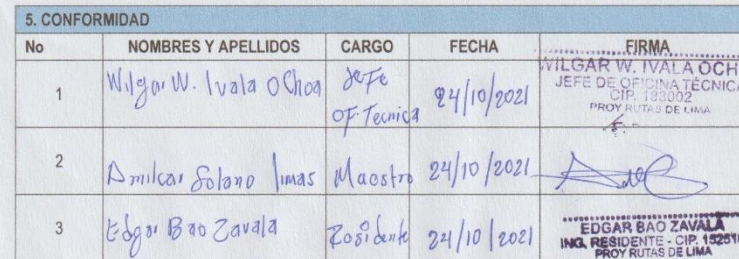 5. CONFORMIDAD
No NOMBRES Y APELLIDOS CARGO FECHA FIRMA
1 Wilgar W. Ivala Ochoa Jefe Of. Tecnica 24/10/2021
WILGAR W. IVALA OCH
JEFE DE OFICINA TÉCNICA
CIP. 183002
PROY RUTAS DE LIMA
2 Amilcar Solano limas Maestro 24/10/2021
3 Edgar Bao Zavala Residente 24/10/2021
EDGAR BAO ZAVALA
ING. RESIDENTE - CIP. 152510
PROY RUTAS DE LIMA